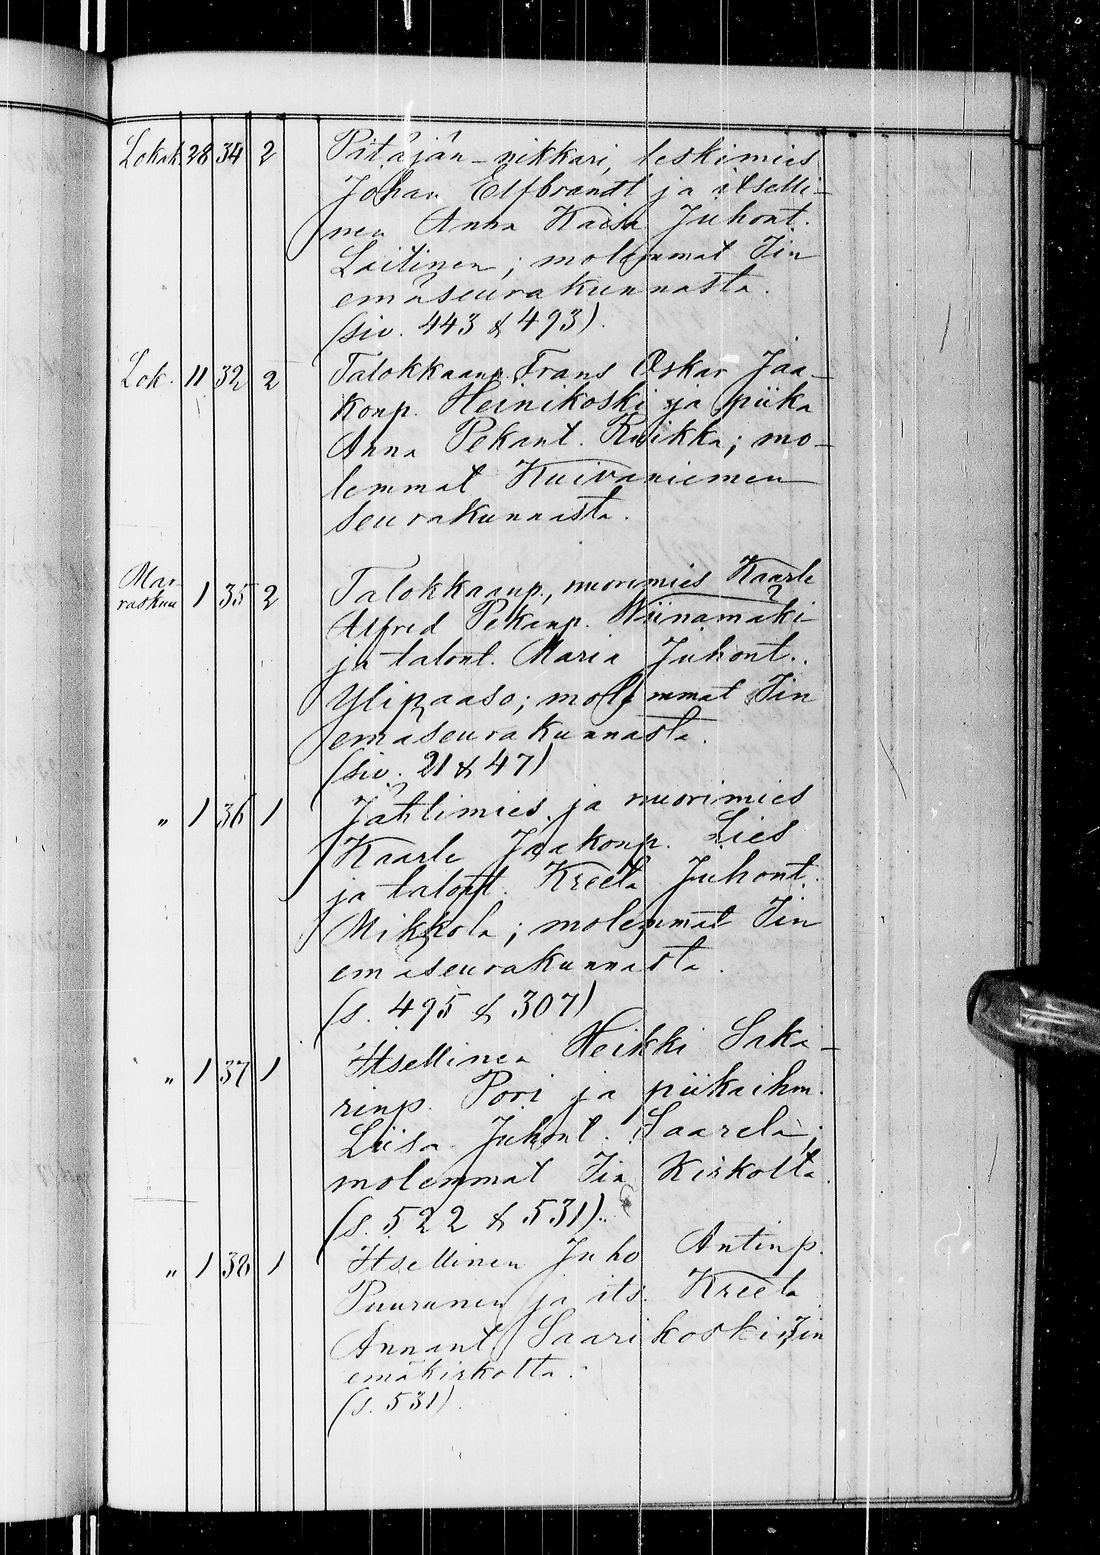 Lokak 28 34 2 Pitäjän-nikkari, leskimies
Johan Elfbrandt ja itselli-
nen Anna Kaisa Juhont.
Laitinen; molemmat Iin
emäseurakunnasta.
(siv. 443 & 493).
Lok. 11 32 2 Talokkaanp. Frans Oskar Jaa-
konp. Heinikoski ja piika
Anna Pekant. Kuikka; mo-
lemmat Kuivaniemen
seurakunnasta.
Mar-
raskuu 1 35 2 Talokkaanp., nuorimies Kaarle
Alfred Pekanp. Wiinamäki
ja talont. Maria Juhont.
Ylipaaso; molemmat Iin
emäseurakunnasta.
(siv. 21 & 47)
" 1 36 1 Jahtimies ja nuorimies
Kaarle Jaakonp. Lies
ja talont. Kreeta Juhont.
Mikkola; molemmat Iin
emäseurakunnasta.
(s. 495 & 307)
" 1 37 1 Itsellinen Heikki Saka-
rinp. Pori ja piikaihm.
Liisa Juhont. Saarela;
molemmat Iin Kirkolta.
(s. 522 & 531).
" 1 38 1 Itsellinen Juho Antinp.
Puurunen ja its. Kreeta
Annant. Saarikoski, Iin
emäkirkolta.
(s. 531)